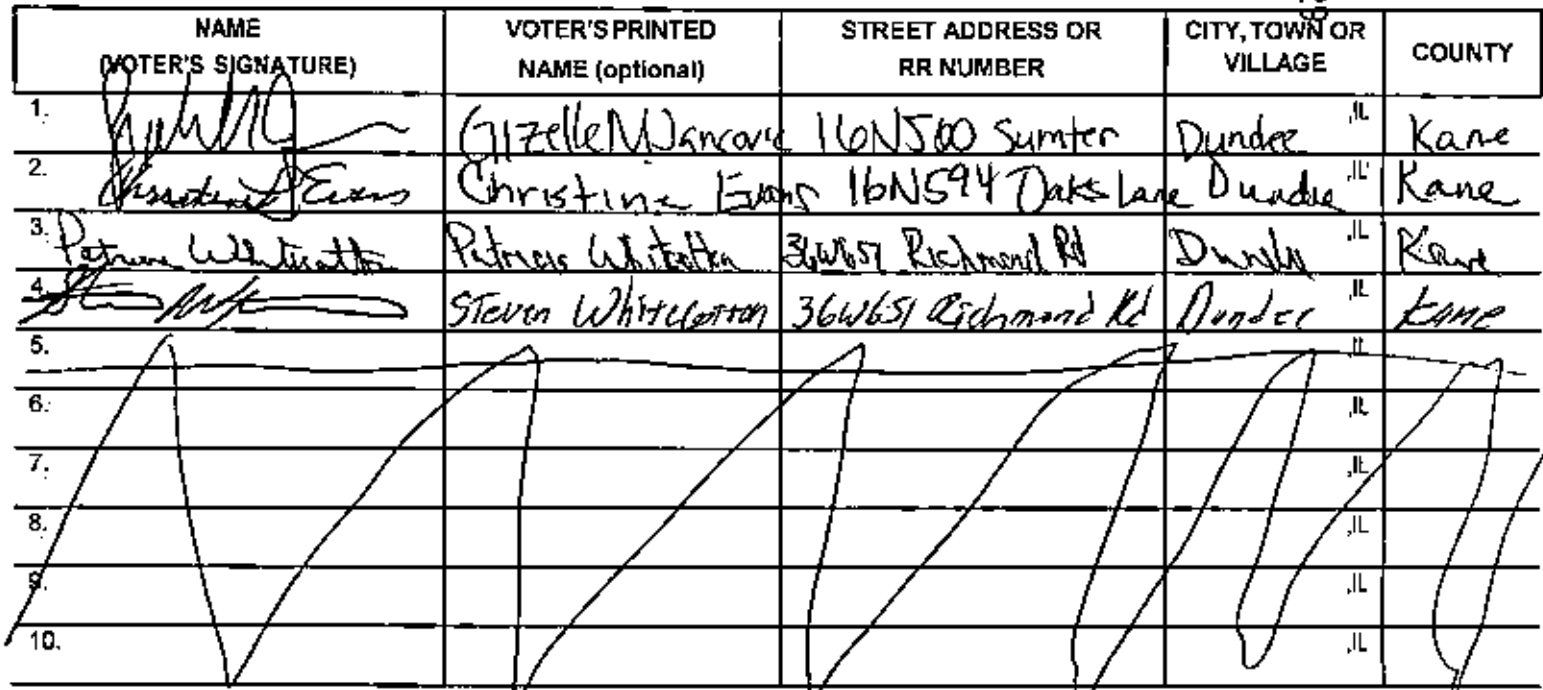 NAME (VOTER'S SIGNATURE) VOTER'S PRINTED NAME (optional) STREET ADDRESS OR RR NUMBER CITY, TOWN OR VILLAGE COUNTY
1. Gizelle 16N560 Sumter Dundee ,IL Kane
2. Evans Christine Evans 16N594 Oaks Lane Dundee ,IL Kane
3. Richmond Rd Dundee ,IL Kane
4. Steven Whitecotton 36W651 Richmond Rd Dundee ,IL Kane
5. ,IL
6. ,IL
7. ,IL
8. ,IL
9. ,IL
10. ,IL